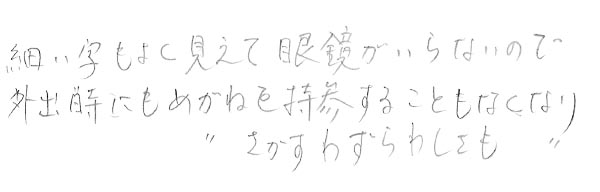 細い字もよく見えて眼鏡がいらないので
外出時にもめがねを持参することもなくなり
〃 さがすわずらわしさも 〃